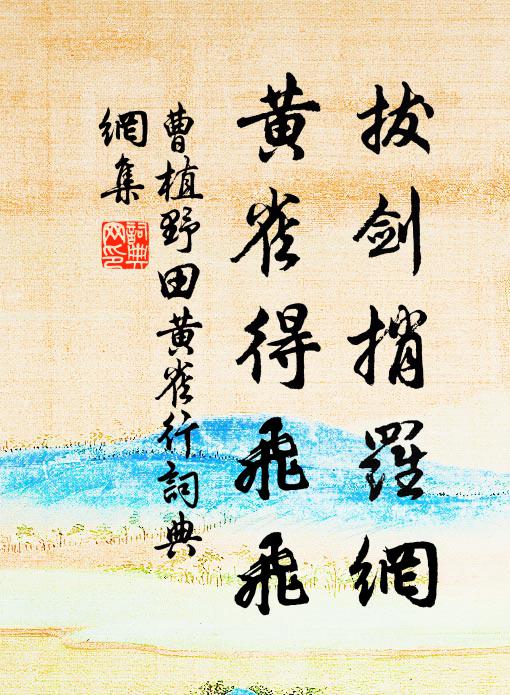 拔剑捎羅網
黃雀得飛飛
曹植野田黃雀行詞典
網集
詞典
網印